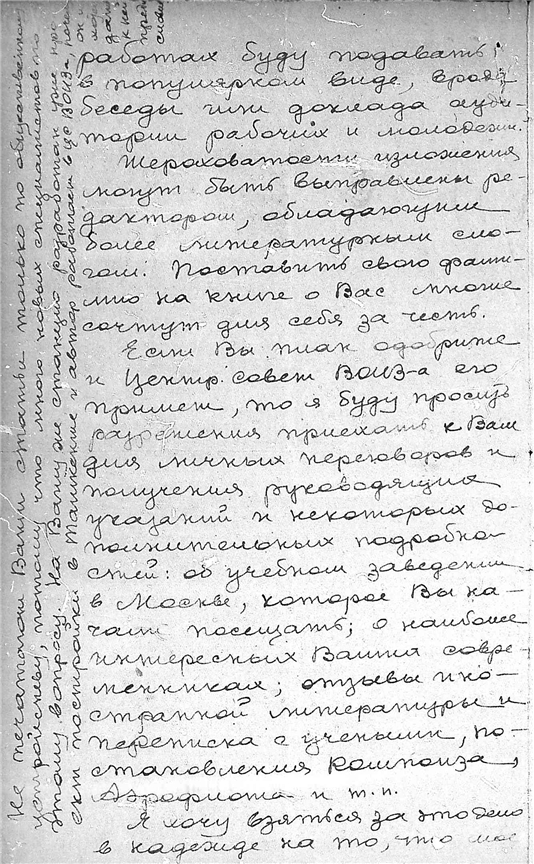 работах буду подавать
в популярном виде, вроде
беседы или доклада ауди-
тории рабочих и молодежи.
Шероховатости изложения
могут быть выправлены ре-
дактором, обладающим
более литературным сло-
гом. Поставить свою фами-
лию на книге о Вас многие
сочтут для себя за честь.
Если Вы план одобрите
и Центр. совет ВОИЗ-а его
примет, то я буду просить
разрешения приехать к Вам
для личных переговоров и
получения руководящих
указаний и некоторых до-
полнительных подробно-
стей: об учебном заведении
в Москве, которое Вы на-
чали посещать; о наиболее
интересных Ваших совре-
менниках; отзывы ино-
странной литературы и
переписка с учеными, по-
становления Компоиза,
Аэрофлота и т.п.
Я хочу взяться за это дело
в надежде на то, что
Не печатали Вашии статьи только по общественному
устройству, потому что много новых специалистов по
этому вопросу. На Вашу же станцию разработан уже
ект постройки в Ташкенте и автор работает в ЦС ВОИЗа